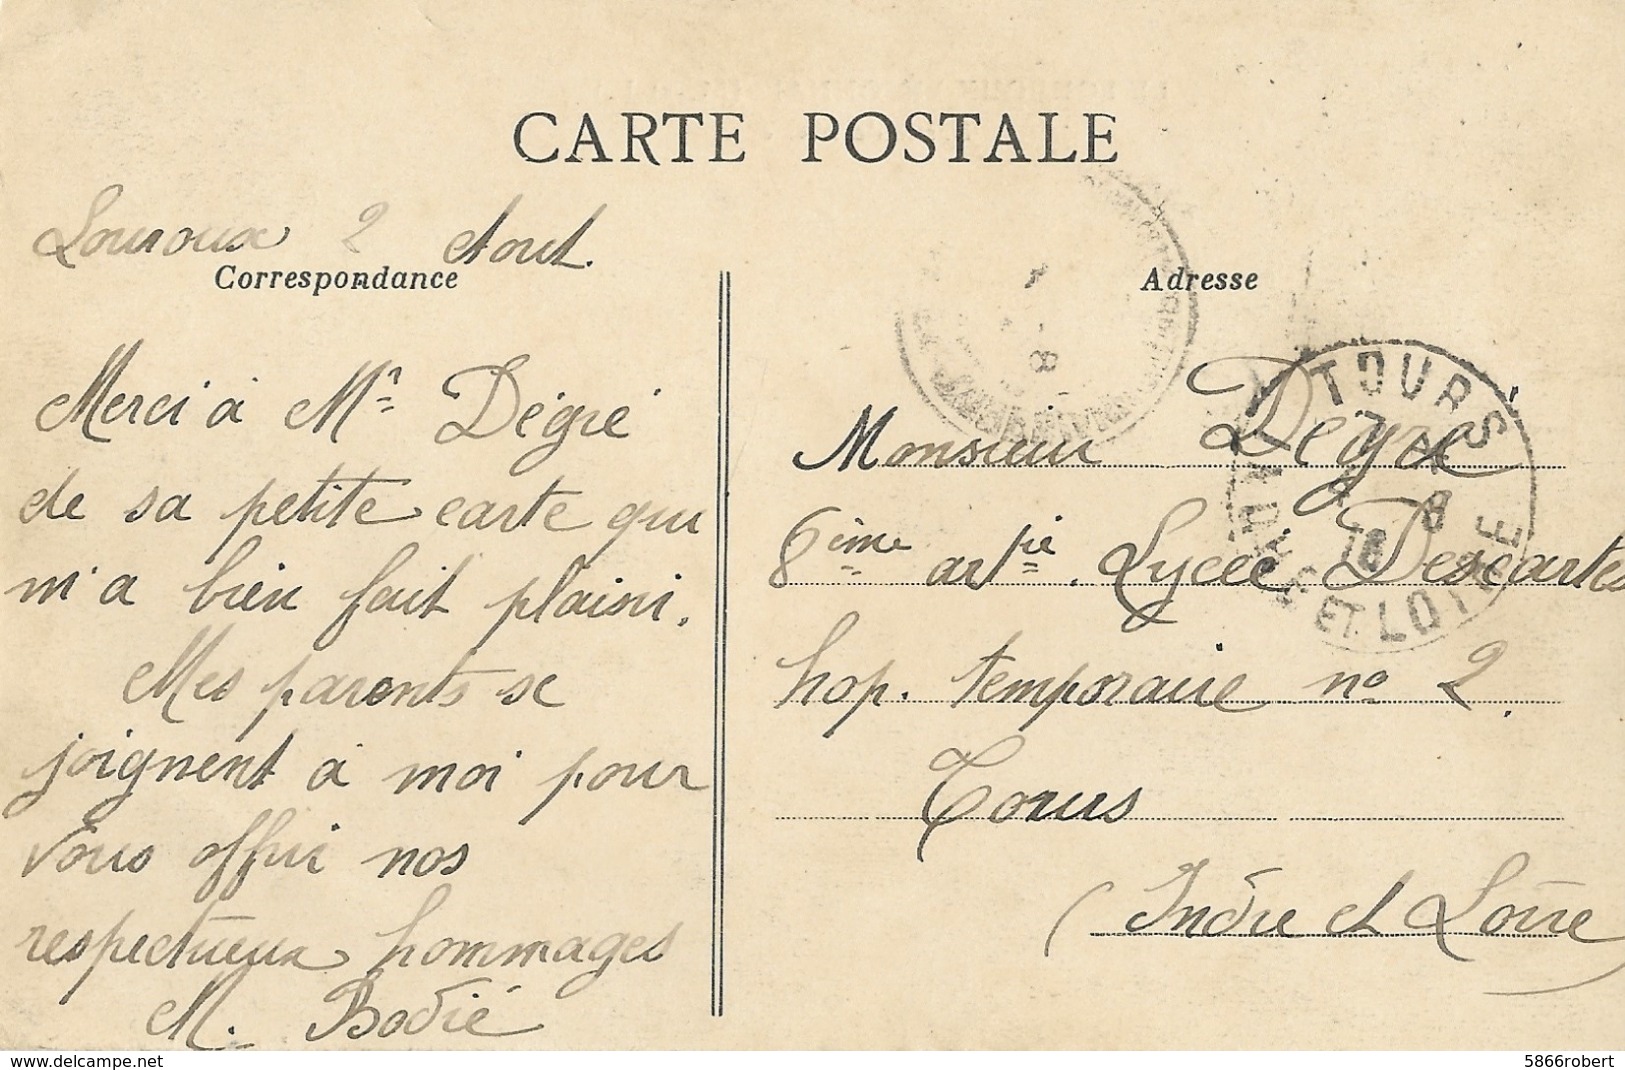 CARTE POSTALE
Louroux 2 Aout.
Correspondance
Merci à Mr Dégré
de sa petite carte qui
m'a bien fait plaisir.
Mes parents se
joignent à moi pour
vous offrir nos
respectueux hommages
M. Bodié
Adresse
TOURS
ET LOIRE
Monsieur Dégré
6ème artie. Lycée Descartes
hop. temporaire no 2.
Tours
(Indre et Loire)
www.delcampe.net
5866robert